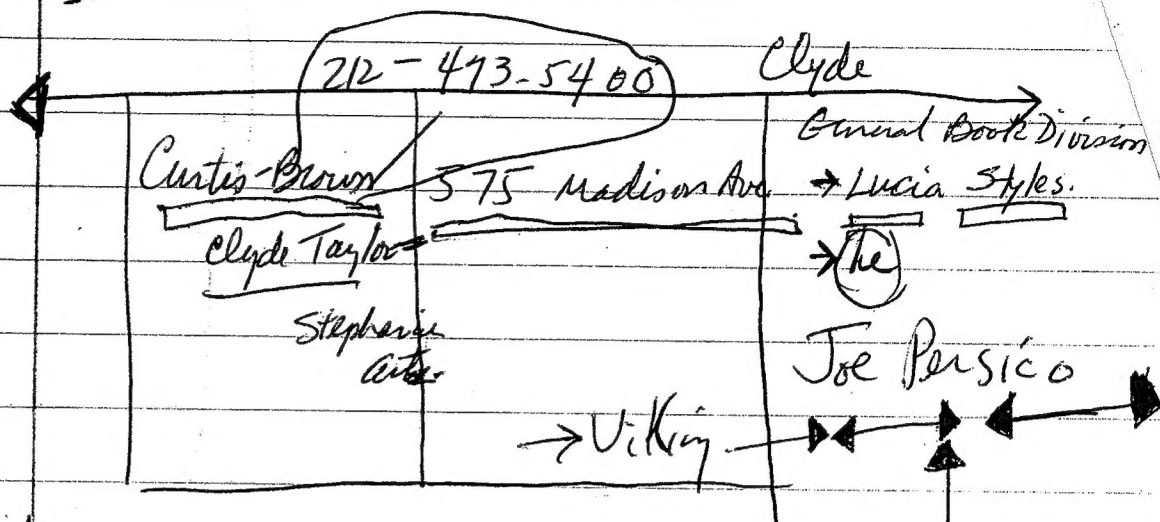 212-473-5400 Clyde
General Book Division
Curtis-Brown 575 Madison Ave. → Lucia Styles.
Clyde Taylor → he
Stephanie
Joe Persico
→ Viking